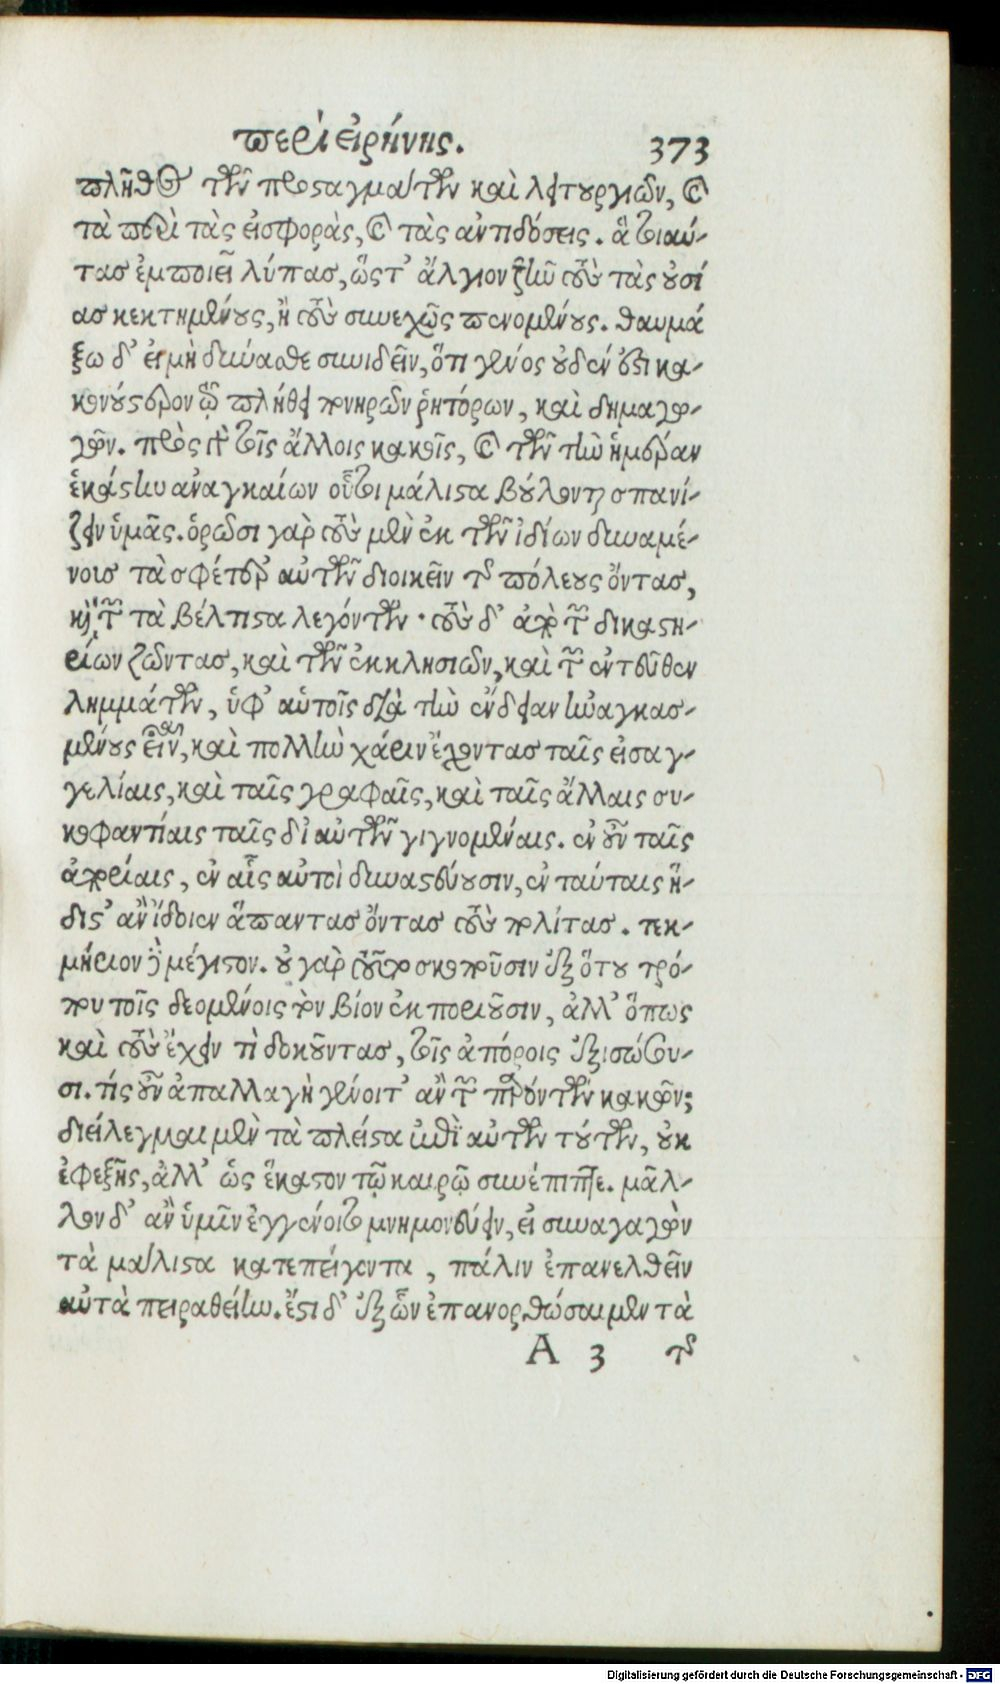 περὶ εἰρήνης. 373
πλῆθος τῶν προσταγμάτων καὶ λειτουργιῶν, καὶ
τὰ περὶ τὰς εἰσφορὰς, καὶ τὰς ἀντιδόσεις. ἃ τοιαύ-
τας ἐμποιεῖ λύπας, ὥστ' ἄλγιον ζῆν τοὺς τὰς οὐσί
ας κεκτημένους, ἢ τοὺς συνεχῶς πενομένους. θαυμά
ζω δ' εἰ μὴ δύνασθε συνιδεῖν, ὅτι γένος οὐδέν ἐστι κα-
κονούστερον τῷ πλήθει πονηρῶν ῥητόρων, καὶ δημαγω-
γῶν. πρὸς γὰρ τοῖς ἄλλοις κακοῖς, καὶ τῶν τὴν ἡμέραν
ἑκάστην ἀναγκαίων οὗτοι μάλιστα βούλονται σπανί-
ζειν ὑμᾶς. ὁρῶσι γὰρ τοὺς μὲν ἐκ τῶν ἰδίων δυναμέ-
νοις τὰ σφέτερ' αὐτῶν διοικεῖν τῆς πόλεως ὄντας,
καὶ τῶν τὰ βέλτιστα λεγόντων· τοὺς δ' ἀπὸ τῶν δικαστη-
ρίων ζῶντας, καὶ τῶν ἐκκλησιῶν, καὶ τῶν ἐντεῦθεν
λημμάτων, ὑφ' αὑτοῖς διὰ τὴν ἔνδειαν ἠναγκασ-
μένους εἶναι, καὶ πολλὴν χάριν ἔχοντας ταῖς εἰσαγ-
γελίαις, καὶ ταῖς γραφαῖς, καὶ ταῖς ἄλλαις συ-
κοφαντίαις ταῖς δι' αὐτῶν γιγνομέναις. ἐν οὖν ταῖς
ἀπορίαις, ἐν αἷς αὐτοὶ δυναστεύουσιν, ἐν ταύταις ἥ-
διστ' ἂν ἴδοιεν ἅπαντας ὄντας τοὺς πολίτας. τεκ-
μήριον δὲ μέγιστον. οὐ γὰρ τοῦτο σκοποῦσιν ἐξ ὅτου τρό-
που τοῖς δεομένοις τὸν βίον ἐκποριοῦσιν, ἀλλ' ὅπως
καὶ τοὺς ἔχειν τὶ δοκοῦντας, τοῖς ἀπόροις ἐξισώσου-
σι. τίς οὖν ἀπαλλαγὴ γένοιτ' ἂν τῶν παρόντων κακῶν;
διείλεγμαι μὲν τὰ πλεῖστα περὶ αὐτῶν τούτων, οὐκ
ἐφεξῆς, ἀλλ' ὡς ἕκαστον τῷ καιρῷ συνέπιπτε. μᾶλ-
λον δ' ἂν ὑμῖν ἐγγένοιτο μνημονεύειν, εἰ συναγαγὼν
τὰ μάλιστα κατεπείγοντα, πάλιν ἐπανελθεῖν
αὐτὰ πειραθείην. ἔστι δ' ἐξ ὧν ἐπανορθώσαιμεν τὰ
A 3 τῆς
Digitalisierung gefördert durch die Deutsche Forschungsgemeinschaft - DFG